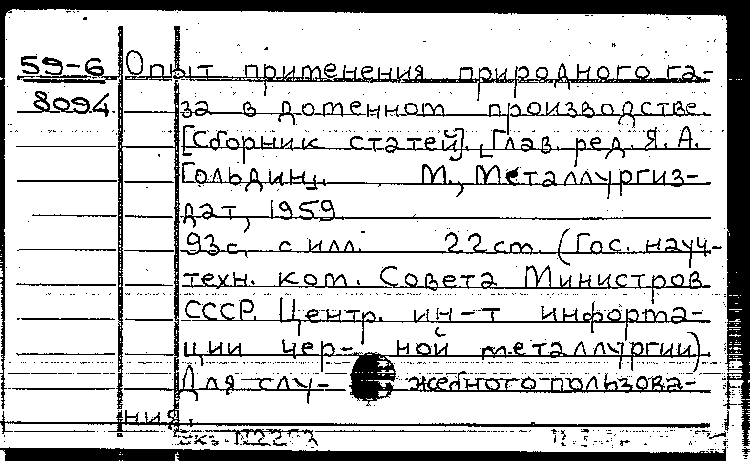 59-6 Опыт применения природного га-
8094 за в доменном производстве.
[Сборник статей]. [Глав. ред. Я. А.
Гольдин]. М., Металлургиз-
дат, 1959.
93 с. с илл. 22 см. (Гос. науч.-
техн. ком. Совета Министров
СССР. Центр. ин-т информа-
ции чер- ной металлургии).
Для слу- жебного пользова-
ния.